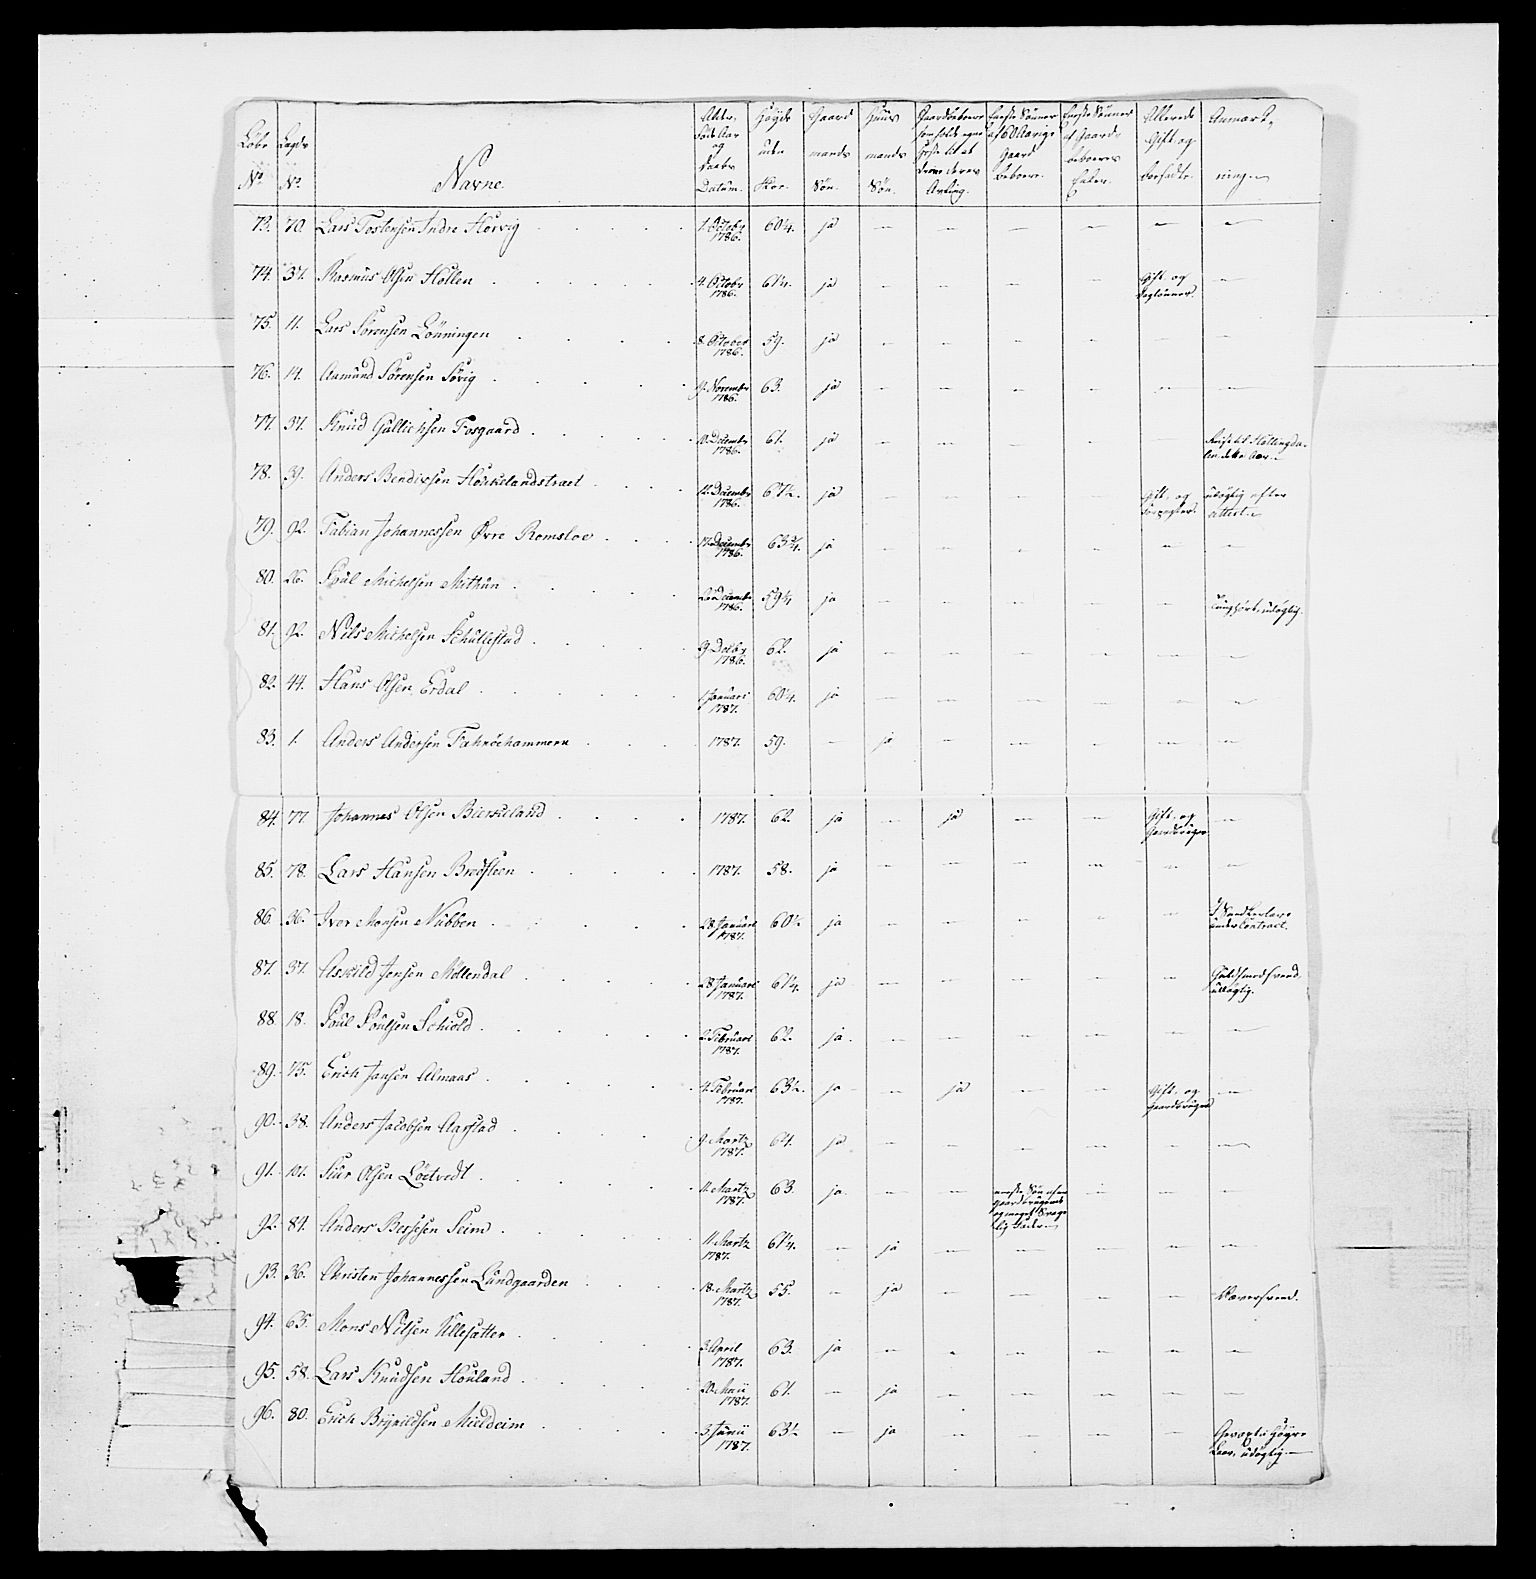 Løbe No. | Lægds No. | Navne | Alder, Føde Aar og Daabs Datum. | Høyde uden Skoe. | Gaardmands Søn. | Huusmands Søn. | Gaardbeboere som holde egne Heste til at drive deres Avling. | Eneste Sønner af 60 Aarige Gaard Beboere. | Eneste Sønner af Gaardbeboeres Enker. | Allerede Gift og Bosadte. | Anmærkning.
73. | 70. | Lars Tostensen Indre Hørvig | 1 Octobr 1786. | 60¼. | ja | — | — | — | — | — | —
74. | 37. | Rasmus Olsen Hollen | 4. Octobr 1786. | 61¼. | ja | — | — | — | — | Gift og Daglønner. | —
75. | 11. | Lars Sørensen Lønningen | 8 October 1786. | 59. | ja | — | — | — | — | — | —
76. | 14. | Aamund Sørensen Sørig | 9. Novembr 1786. | 63. | ja | — | — | — | — | — | —
77. | 37. | Knud Gullichsen Fosgaard | 10. Decembr 1786. | 61. | ja | — | — | — | — | | Reise til Hallingdalen dette Aar.
78. | 39. | Anders Bendixsen Haukelandstræet | 12. Decembr 1786. | 67½. | ja | — | — | — | — | Gift og | udøgtig efter Attest.
79. | 92. | Fabian Johannessen Øvre Romsloe | 17. Decembr 1786. | 63¾. | ja | — | — | — | — | — | —
80. | 26. | Poul Michelsen Mithun | Decembr 1786. | 59¼ | ja | — | — | — | — | — | udøgtig.
81. | 92. | Nils Michelsen Schullestad | 29 Decbr 1786. | 62. | ja | — | — | — | — | — | —
82. | 44. | Hans Olsen Erdal | 1 Januari 1787. | 60¼. | ja | — | — | — | — | — | —
83. | 1. | Anders Andersen Fahnøehammern | 1787. | 59. | — | ja | — | — | — | — | —
84. | 77 | Johannes Olsen Bierkeland | 1787. | 62. | ja | — | ja | — | — | Gift og Gaardbruger | —
85. | 78. | Lars Hansen Bredsteen | 1787. | 58. | ja | — | — | — | — | — | —
86. | 36. | Iver Monsen Nubben | 28 Januari 1787. | 60½. | ja | — | — | — | — | — | under Contract.
87. | 37. | Askild Jensen Møllendal | 28 Januari 1787. | 61¼. | ja | — | — | — | — | — | Guldsmedsvend, udøgtig.
88. | 18. | Poul Poulsen Schiold | 2. Februari 1787. | 62. | ja. | — | — | — | — | — | —
89. | 75. | Erich Jansen Almaas | 4. Februari 1787. | 63½. | ja | — | ja | — | — | Gift og Gaardbruger | —
90. | 38. | Anders Jacobsen Aarstad | 9 Martz 1787. | 64. | ja | — | — | — | — | — | —
91. | 101. | Siur Olsen Løetvedt | 11. Martz 1787. | 63. | ja. | — | — | eneste Søn af en Gaardbrugende og meget Svagelig Fader | — | — | —
92. | 84. | Anders Bessesen Seim | 11. Martz 1787. | 61¼. | — | ja | — | — | — | — | —
93. | 36. | Christen Johannessen Lundgaarden | 18. Martz 1787. | 55. | — | ja | — | — | — | — | Væversvend.
94. | 65. | Mons Nilsen Ullesætter | 3 April 1787. | 63. | ja | — | — | — | — | — | —
95. | 58. | Lars Knudsen Houland | 20. Maii 1787. | 61. | — | ja | — | — | — | — | —
96. | 80. | Erich Brynildsen Mieldeim | 3. Junii 1787. | 63½ | — | ja | — | — | — | — | Høyre Laar, udøgtig.